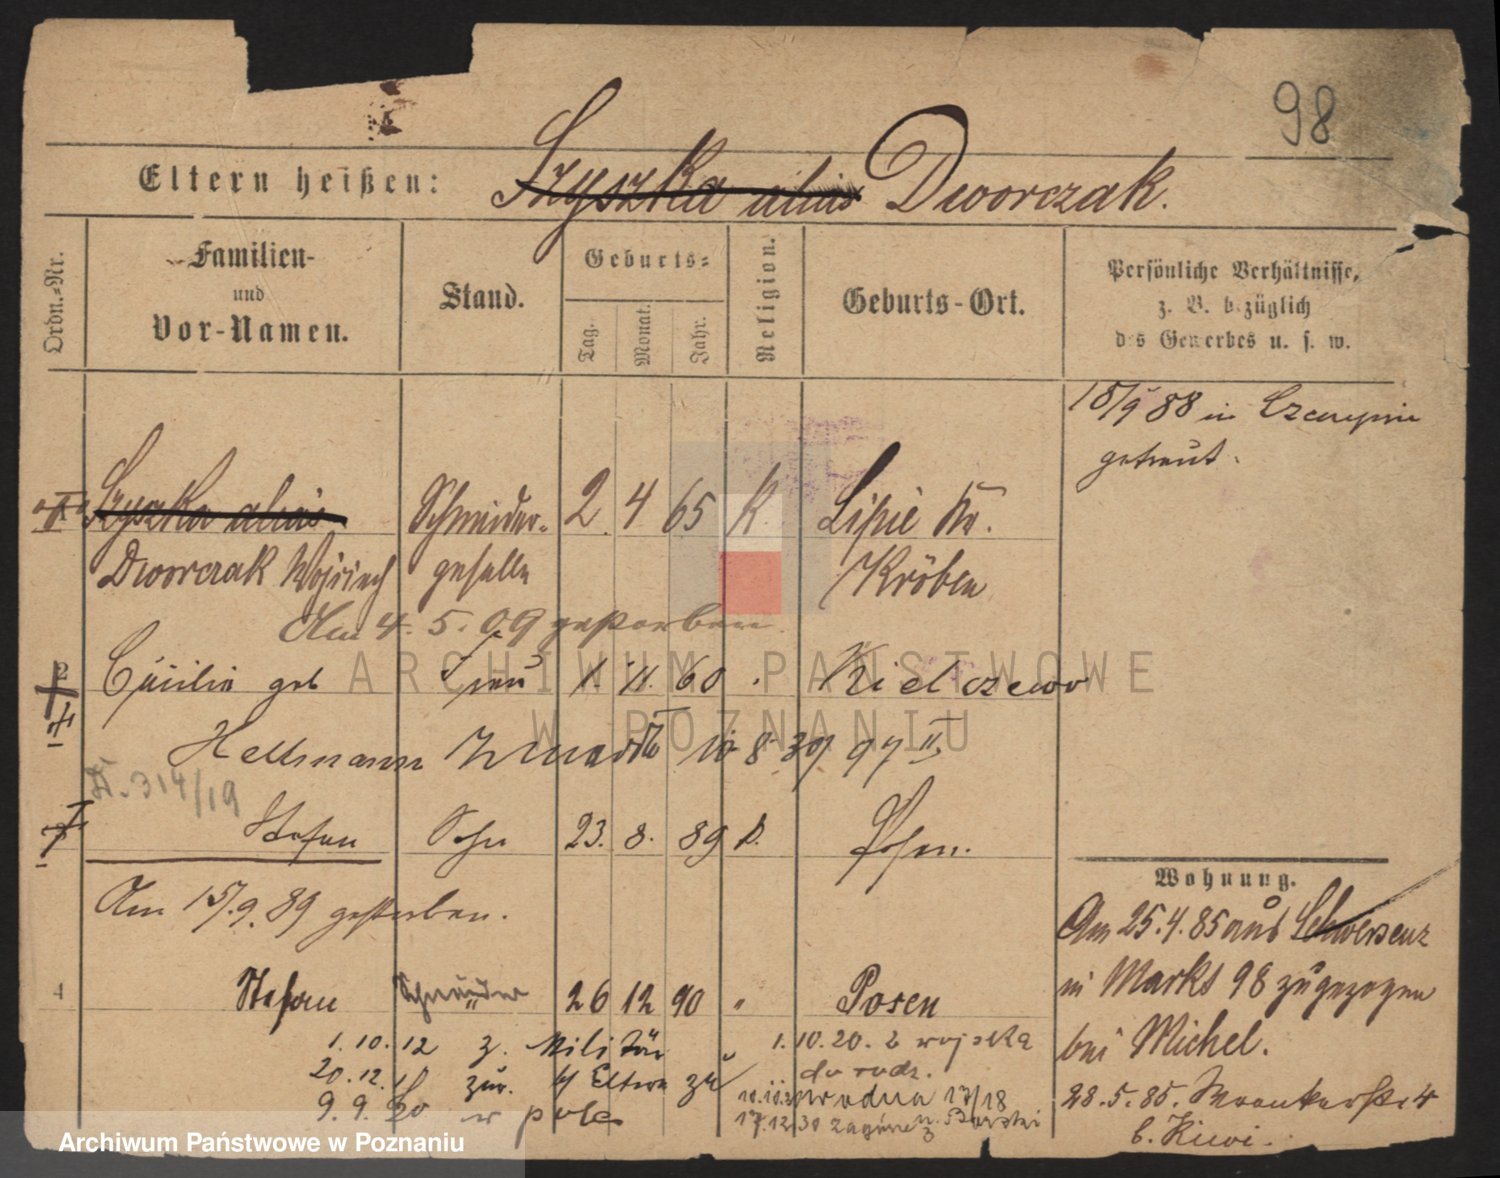 98
Eltern heißen: Szyszka alias Dworczak.
Ordn.-Nr.
Familien-
und
Vor-Namen.
Stand.
Geburts-
Tag.
Monat.
Jahr.
Religion.
Geburts-Ort.
Persönliche Verhältnisse,
z. B. bezüglich
des Gewerbes u. s. w.
15/9 88 in Czempin
getraut.
Szyszka alias Schneider- 2. 4 65 K. Lipie Kr.
Dworczak Wojciech geselle Kröben
Am 4. 5. 09 gestorben
2 Cäcilia geb Frau 1. 11. 60 Kielczewo
Hellmann
314/19
Stefan Sohn 23. 8. 89 k. Posen.
Am 15/9. 89 gestorben.
4 Stefan Schneider 26 12 90 " Posen
1. 10. 12 z. Militär
20. 12. 18 zur. Eltern zu
9. 9. 20 w pole
1. 10. 20. z wojska
do rodz.
Wodna 17/18
17.12.30
Wohnung.
Am 25. 4. 85 aus Schwersenz
in Markt 98 zugezogen
bei Michel.
28. 5. 85.
b.
ARCHIWUM PAŃSTWOWE
W POZNANIU
Archiwum Państwowe w Poznaniu